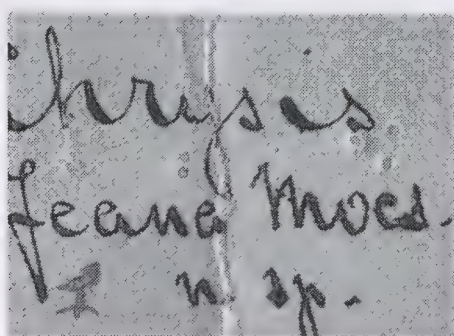 Chrysis
feana Mocs.
♀ n. sp.